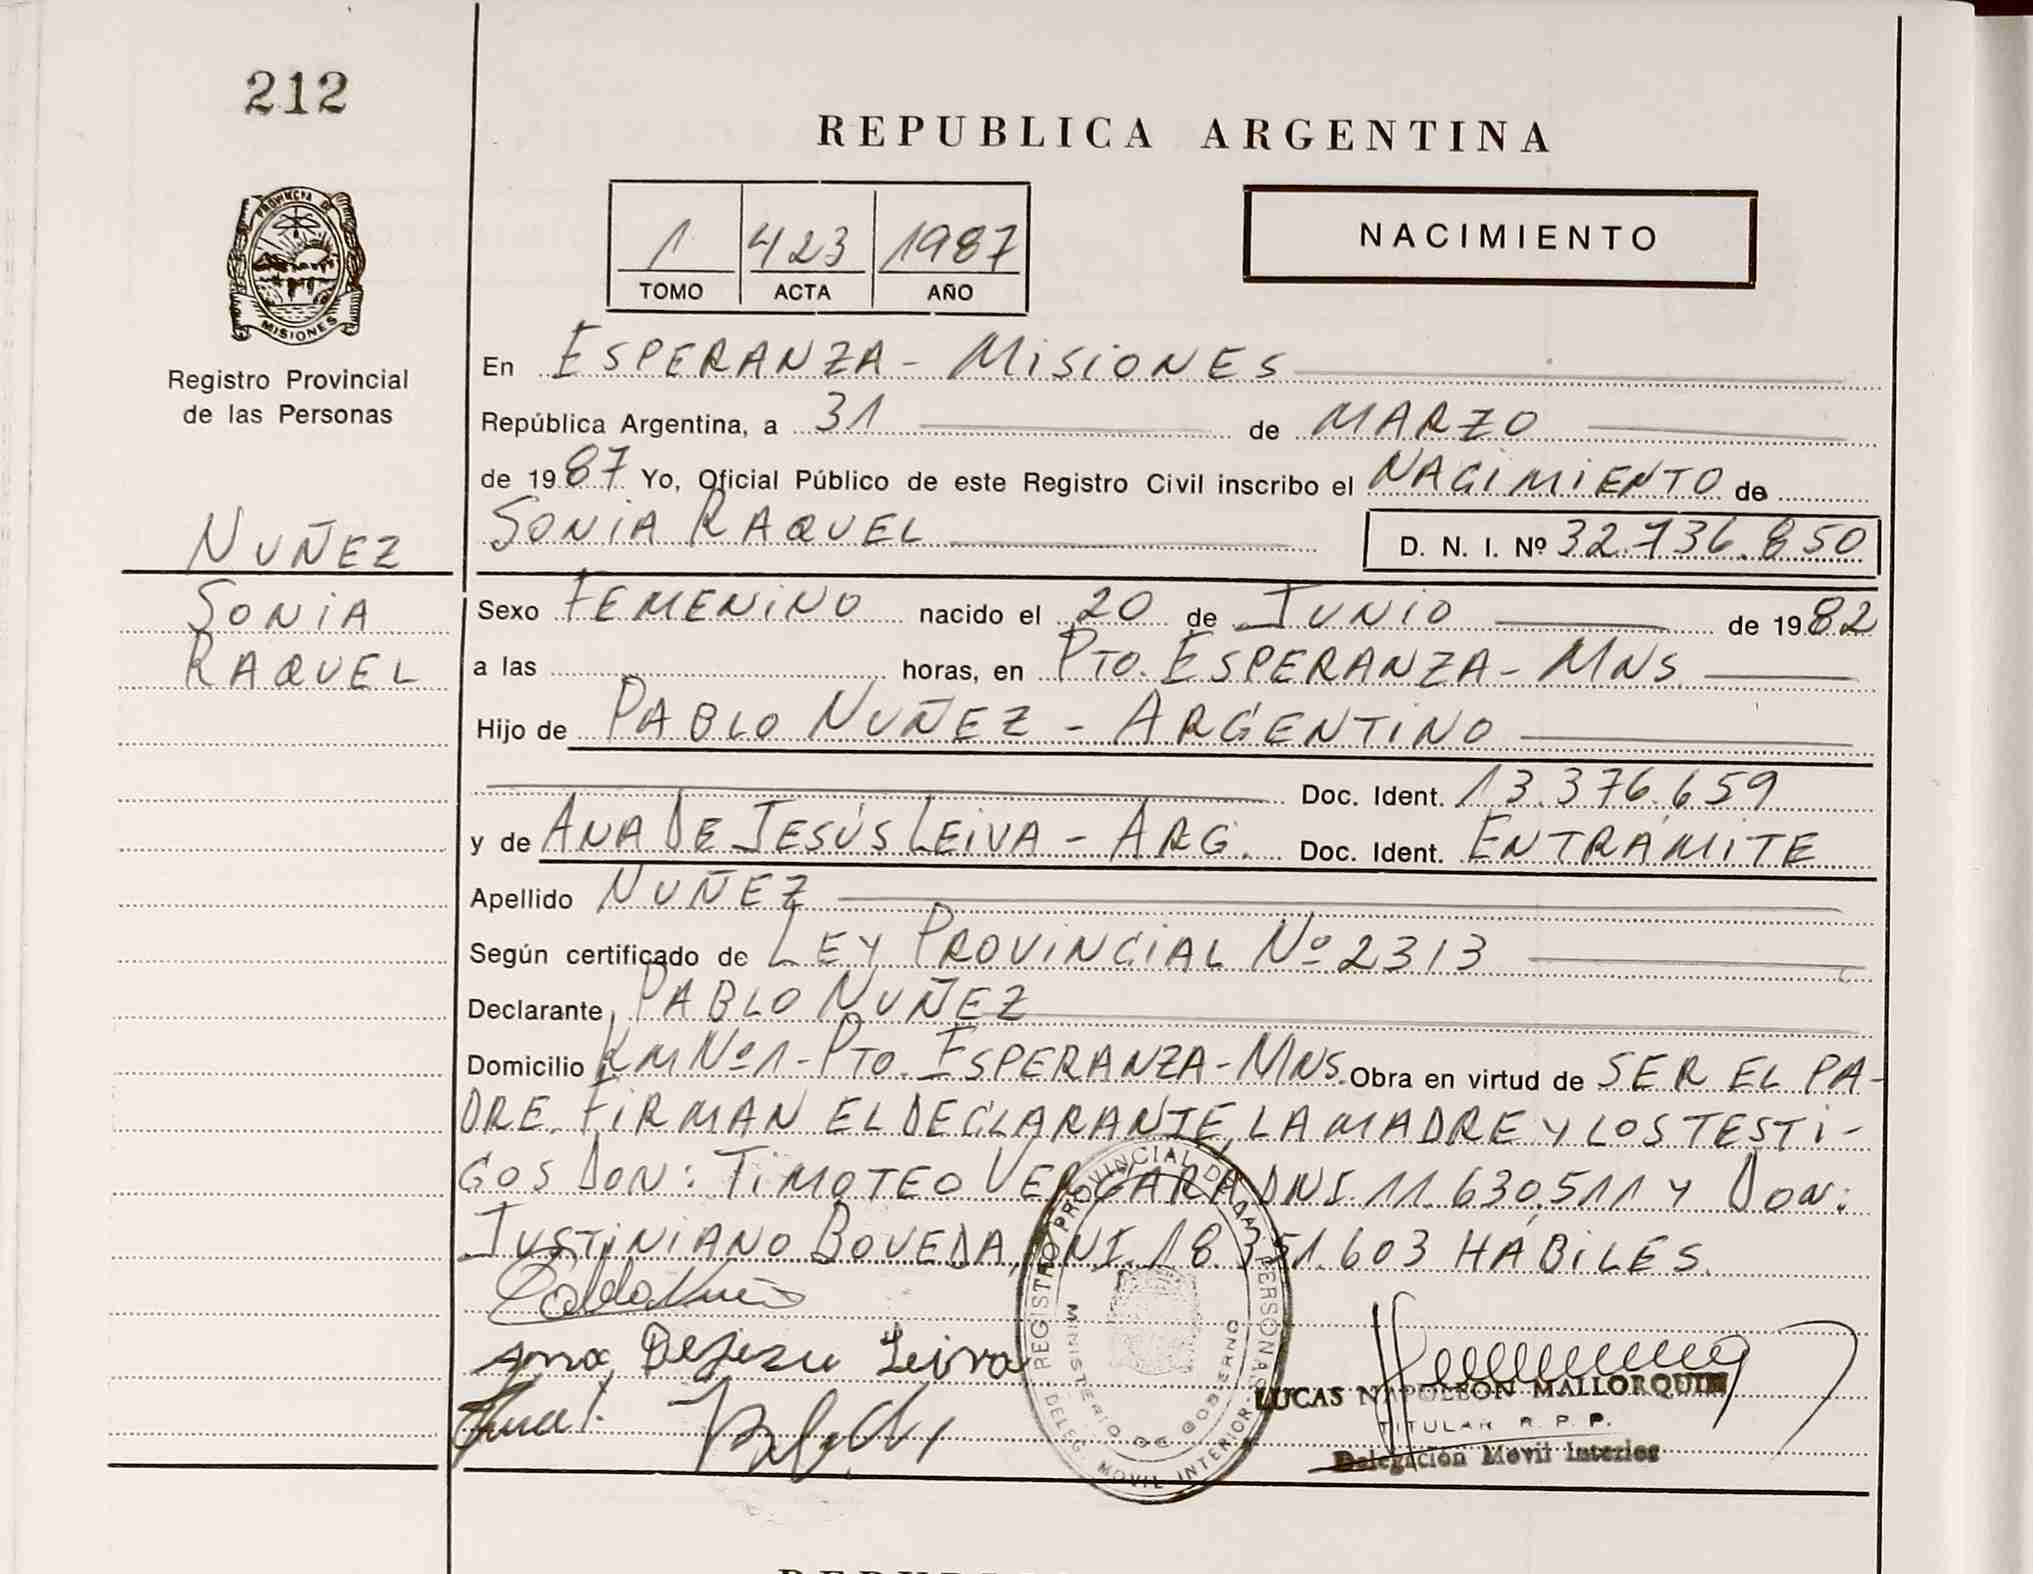 212
REPUBLICA ARGENTINA
1 423 1987
TOMO ACTA AÑO
NACIMIENTO
PROVINCIA DE
MISIONES
Registro Provincial
de las Personas
En ESPERANZA - MISIONES
República Argentina, a 31 de MARZO
de 1987 Yo, Oficial Público de este Registro Civil inscribo el NACIMIENTO de
SONIA RAQUEL D. N. I. Nº 32.736.850
NUÑEZ
SONIA
RAQUEL
Sexo FEMENINO nacido el 20 de JUNIO de 1982
a las horas, en PTO. ESPERANZA - MNS
Hijo de PABLO NUÑEZ - ARGENTINO
Doc. Ident. 13.376.659
y de ANA DE JESÚS LEIVA - ARG. Doc. Ident. EN TRÁMITE
Apellido NUÑEZ
Según certificado de LEY PROVINCIAL Nº 2313
Declarante PABLO NUÑEZ
Domicilio KM Nº 1 - PTO. ESPERANZA - MNS. Obra en virtud de SER EL PA-
DRE. FIRMAN EL DECLARANTE, LA MADRE Y LOS TESTI-
GOS DON: TIMOTEO VERGARA, DNI. 11.630.511 Y DON:
JUSTINIANO BOVEDA, DNI. 18.351.603 HÁBILES.
Pablo Nuñez
Ana Dejesu Leiva
REGISTRO PROVINCIAL DE LAS PERSONAS
MINISTERIO DE GOBIERNO
DELEG. MOVIL INTERIOR
LUCAS NAPOLEON MALLORQUIN
TITULAR R. P. P.
Delegación Movil Interior